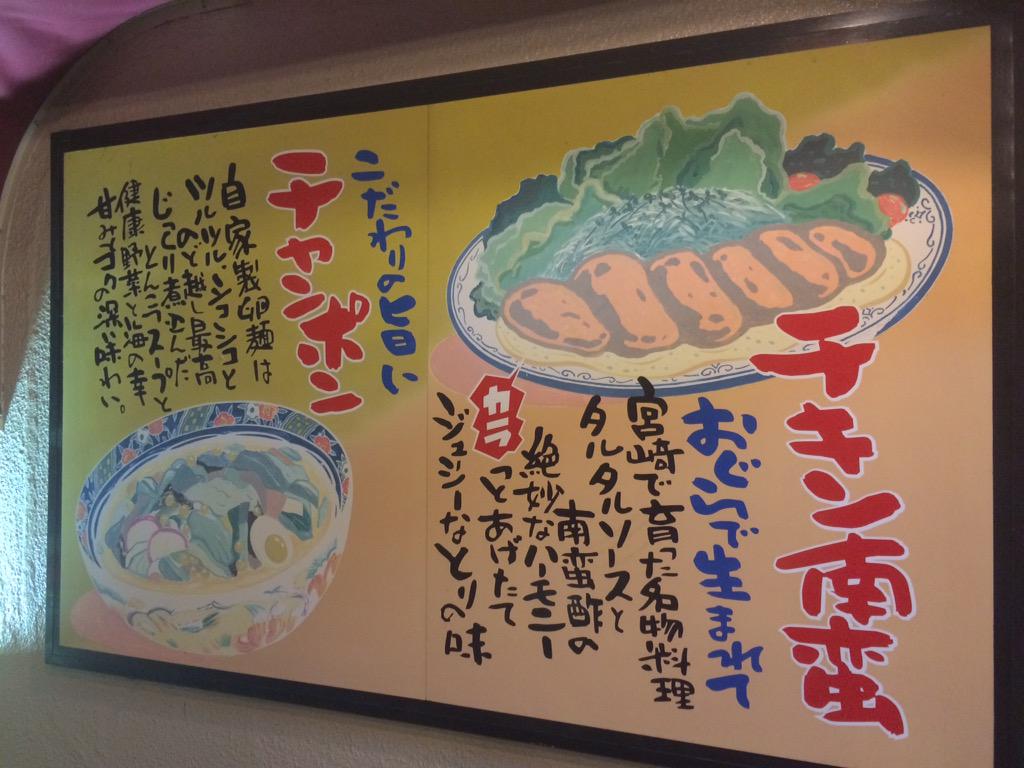 チキン南蛮
おぐらで生まれて
宮崎で育った名物料理
タルタルソースと
南蛮酢の
絶妙なハーモニー
カラっとあげたて
ジューシーなとりの味
こだわりの旨い
チャンポン
自家製卵麺は
ツルツルシコシコと
のど越し最高
じっくり煮込んだ
とんコラスープと
健康野菜と海の幸
甘みコクの深い味わい。